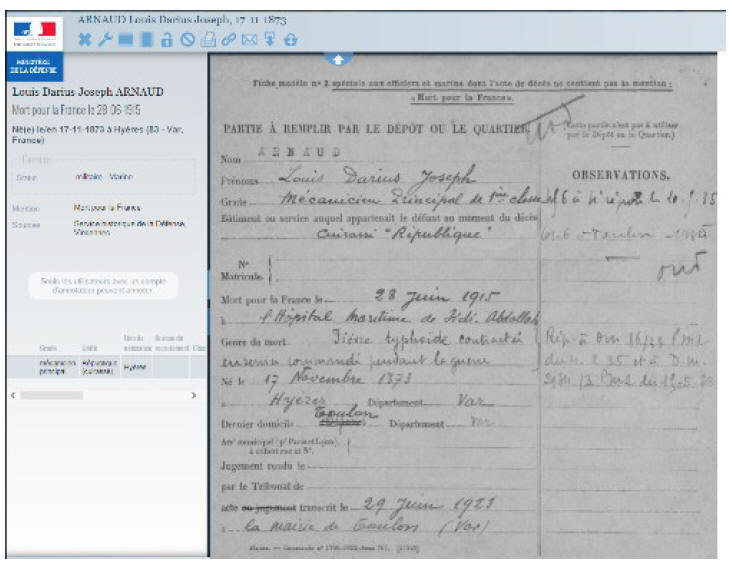 ARNAUD Louis Darius Joseph, 17-11-1873
MINISTÈRE
DE LA DÉFENSE
Louis Darius Joseph ARNAUD
Mort pour la France le 28-06-1915
Né(e) le/en 17-11-1873 à Hyères (83 - Var, France)
Carrière
Statut militaire - Marine
Mention Mort pour la France
Sources Service historique de la Défense, Vincennes
Seuls les utilisateurs avec un compte d'annotateur peuvent annoter.
Grade Unité Lieu de naissance Bureau de recrutement Class
mécanicien principal République (cuirassé) Hyères
Fiche modèle n° 2 spéciale aux officiers et marins dont l'acte de décès ne contient pas la mention :
« Mort pour la France ».
PARTIE À REMPLIR PAR LE DÉPÔT OU LE QUARTIER.
(Cette partie n'est pas à utiliser par le Dépôt ou le Quartier.)
Nom ARNAUD
Prénoms Louis Darius Joseph
OBSERVATIONS.
Grade Mécanicien Principal de 1ère classe
Bâtiment ou service auquel appartenait le défunt au moment du décès
Cuirassé "République"
N° Matricule.
Mort pour la France le 28 Juin 1915
à l'Hôpital Maritime de Sidi-Abdallah
Genre de mort Fièvre typhoïde contractée
en service commandé pendant la guerre
Né le 17 Novembre 1873
à Hyères Département Var
Dernier domicile Toulon Département Var
Arr' municipal (p' Paris et Lyon),
à défaut rue et N°.
Jugement rendu le
par le Tribunal de
acte ou jugement transcrit le 29 Juin 1923
à la mairie de Toulon (Var)